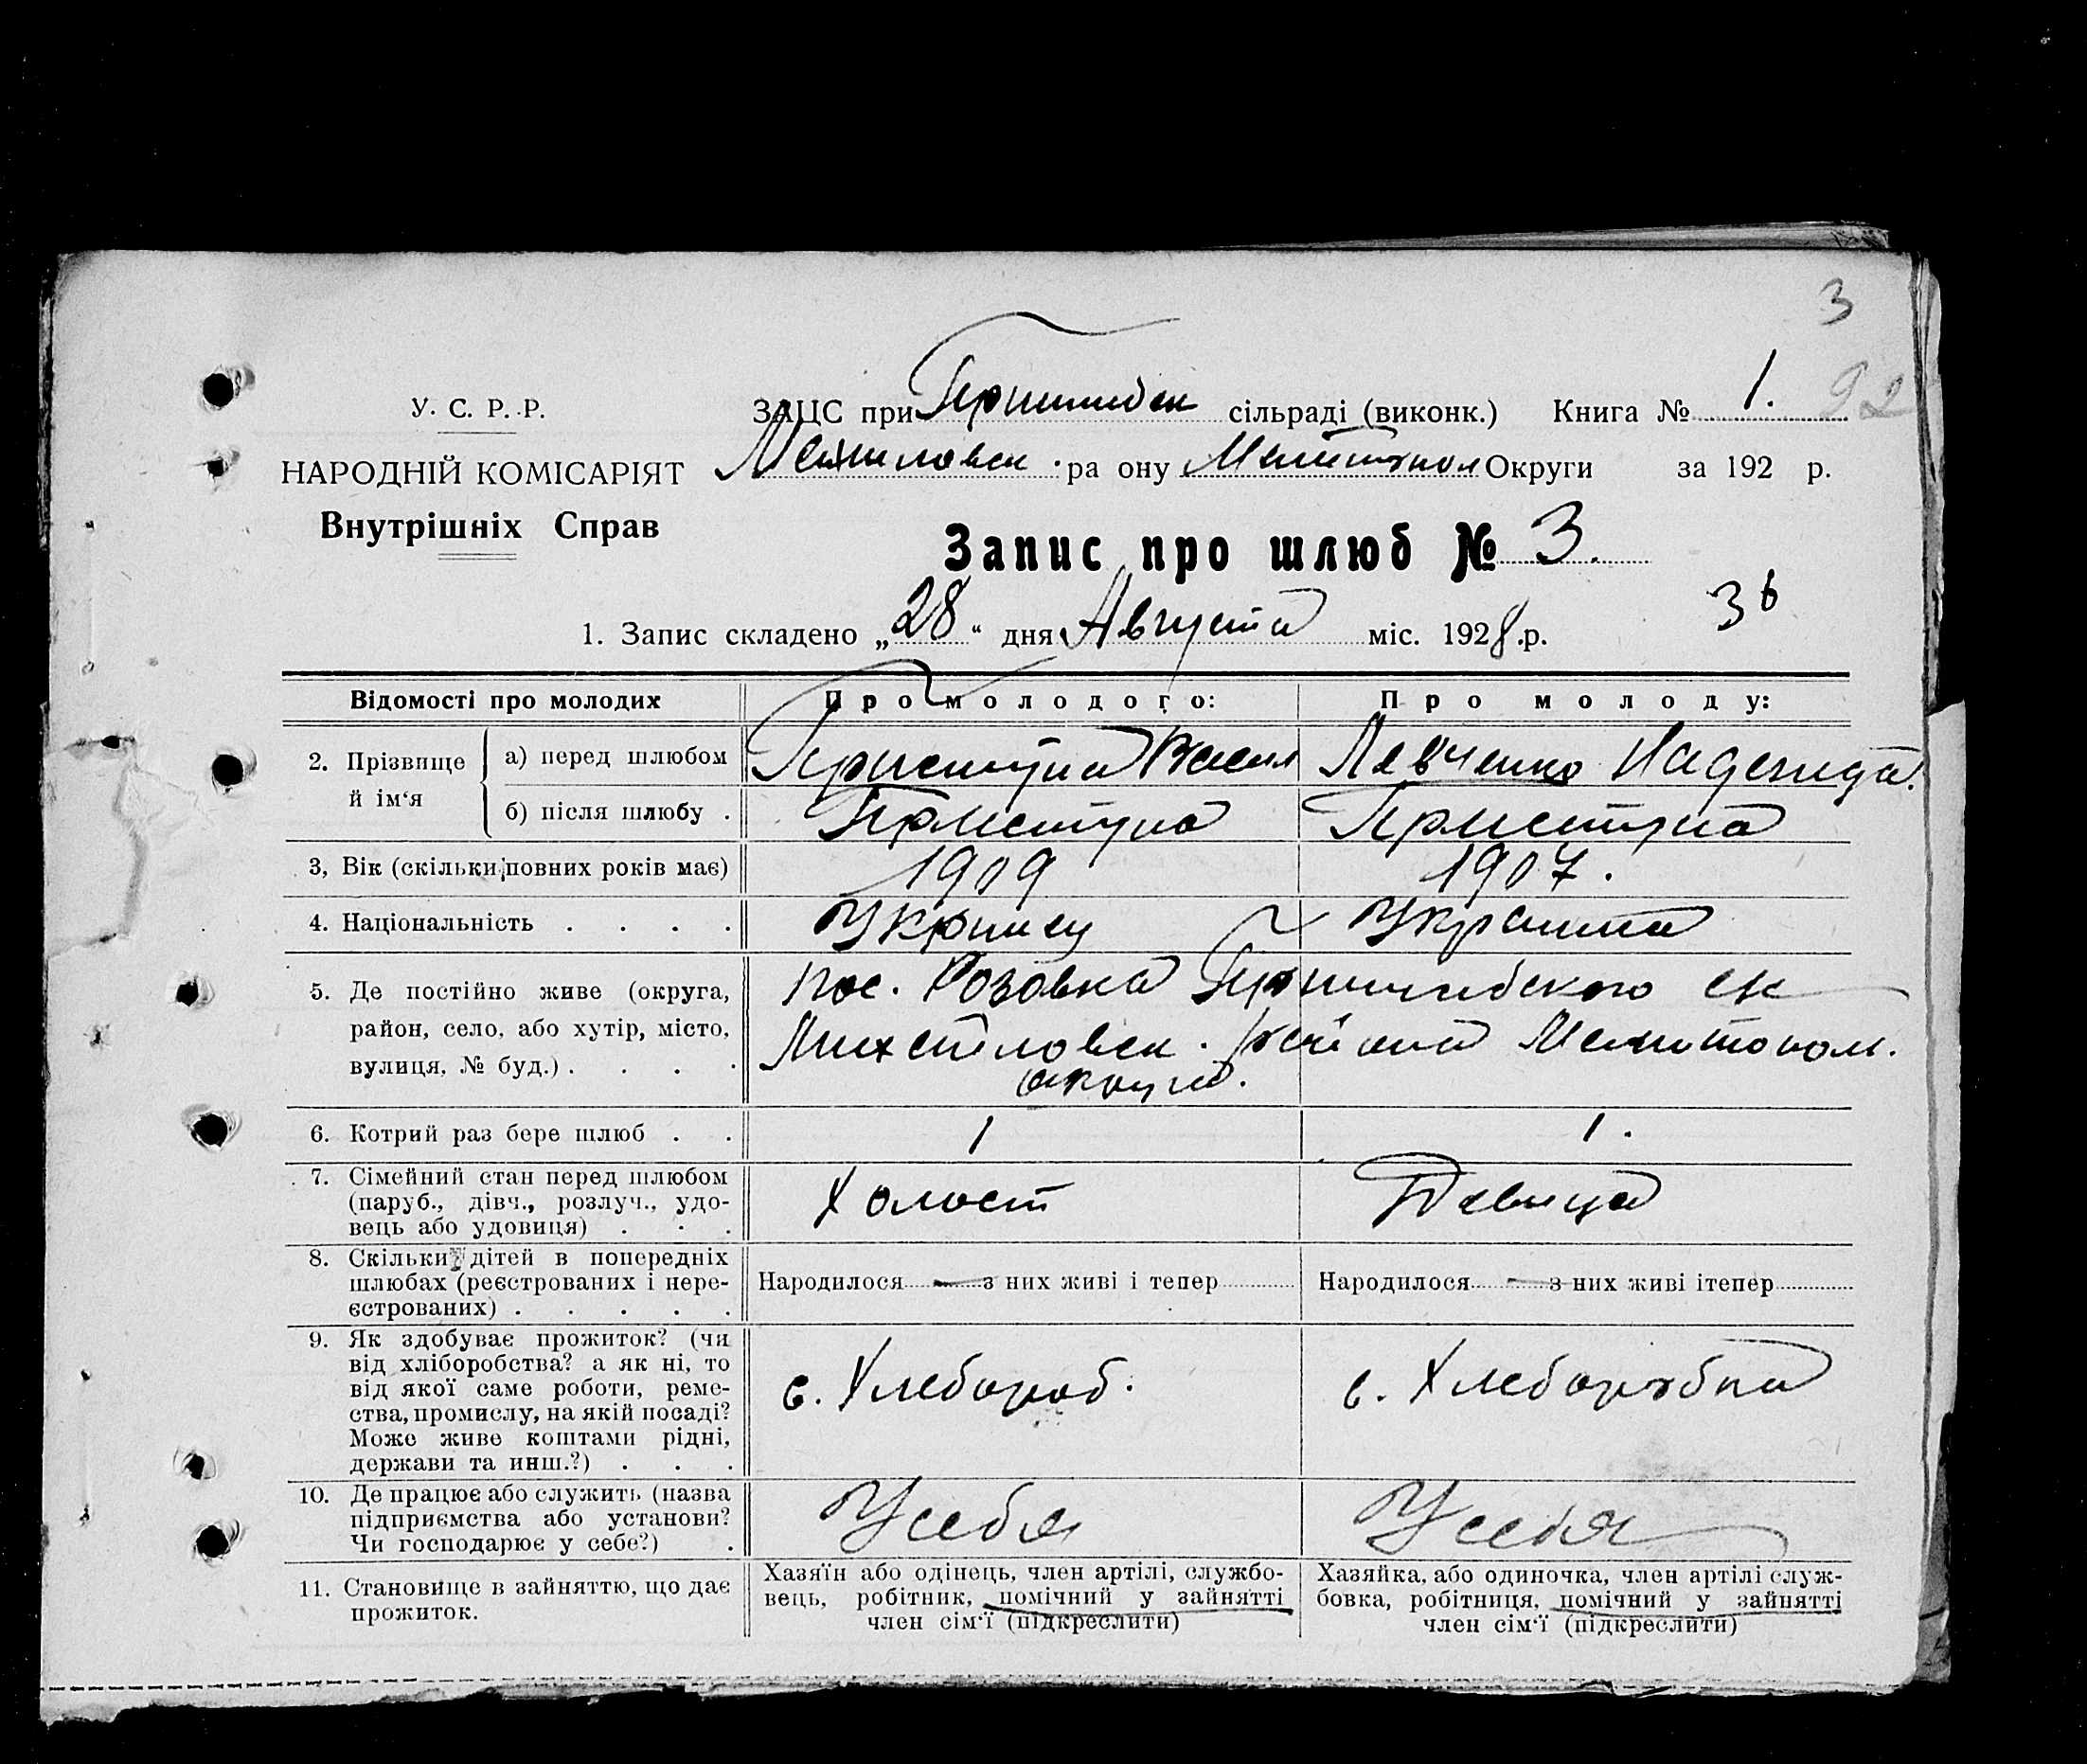 3
92
У. С. Р. Р.
НАРОДНІЙ КОМІСАРІЯТ
Внутрішніх Справ
ЗАЦС при сільраді (виконк.) Книга № 1.
ра ону Округи за 192 р.
Запис про шлюб № 3.
1. Запис складено „28“ дня Августа міс. 1928 р.
Відомості про молодих Про молодого: Про молоду:
2. Прізвище й ім‘я
а) перед шлюбом Левченко Надежда
б) після шлюбу .
3, Вік (скільки повних років має) 1909 1907.
4. Національність . . . . Украинец Украинка
5. Де постійно живе (округа, пос. Розовка
район, село, або хутір, місто, Михайловск. района Мелитопол.
вулиця, № буд.) . . . . округи.
6. Котрий раз бере шлюб . . 1 1.
7. Сімейний стан перед шлюбом
(паруб., дівч., розлуч., удо- Холост Девица
вець або удовиця) . . .
8. Скільки дітей в попередніх
шлюбах (реєстрованих і нере- Народилося — з них живі і тепер Народилося — з них живі ітепер
єстрованих) . . . . .
9. Як здобуває прожиток? (чи
від хліборобства? а як ні, то
від якої саме роботи, реме- с. Хлебороб. с. Хлеборобка
ства, промислу, на якій посаді?
Може живе коштами рідні,
держави та инш.?) . . .
10. Де працює або служить (назва
підприємства або установи? У себя У себя
Чи господарює у себе?) .
11. Становище в зайняттю, що дає
прожиток.
Хазяїн або одінець, член артілі, службо-
вець, робітник, помічний у зайнятті
член сім‘ї (підкреслити)
Хазяйка, або одиночка, член артілі служ-
бовка, робітниця, помічний у зайнятті
член сім‘ї (підкреслити)